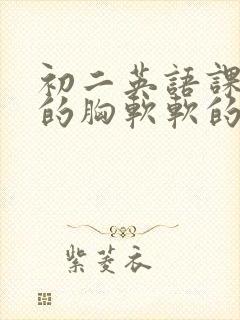 初二英語課
的胸軟軟的
紫菱衣